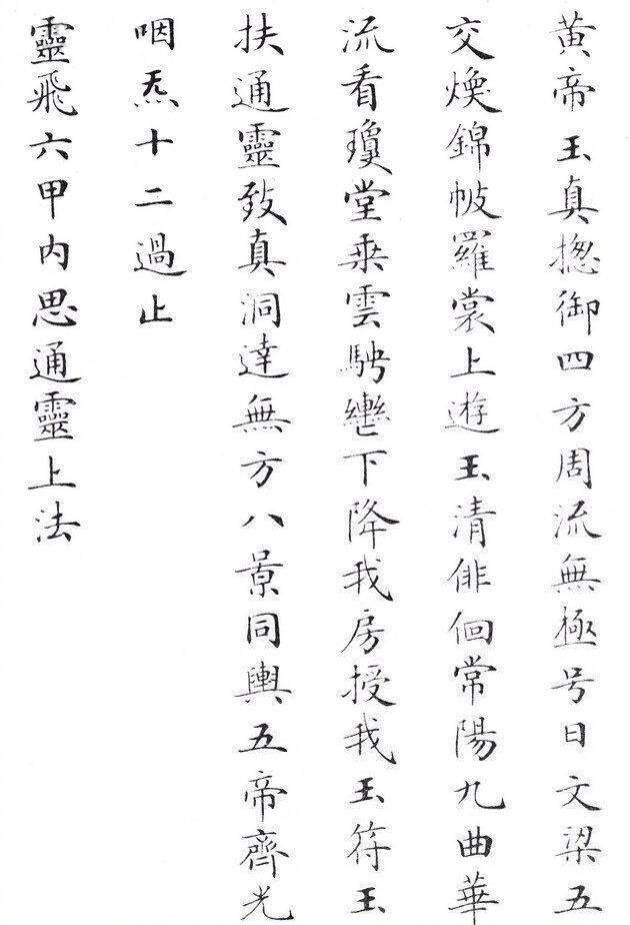 黄帝玉真揔御四方周流無極号曰文梁五
交煥錦帔羅裳上遊玉清俳佪常陽九曲華
流看瓊堂乗雲駃轡下降我房授我玉符玉
扶通靈致真洞達無方八景同輿五帝齊光
咽炁十二過止
靈飛六甲内思通靈上法